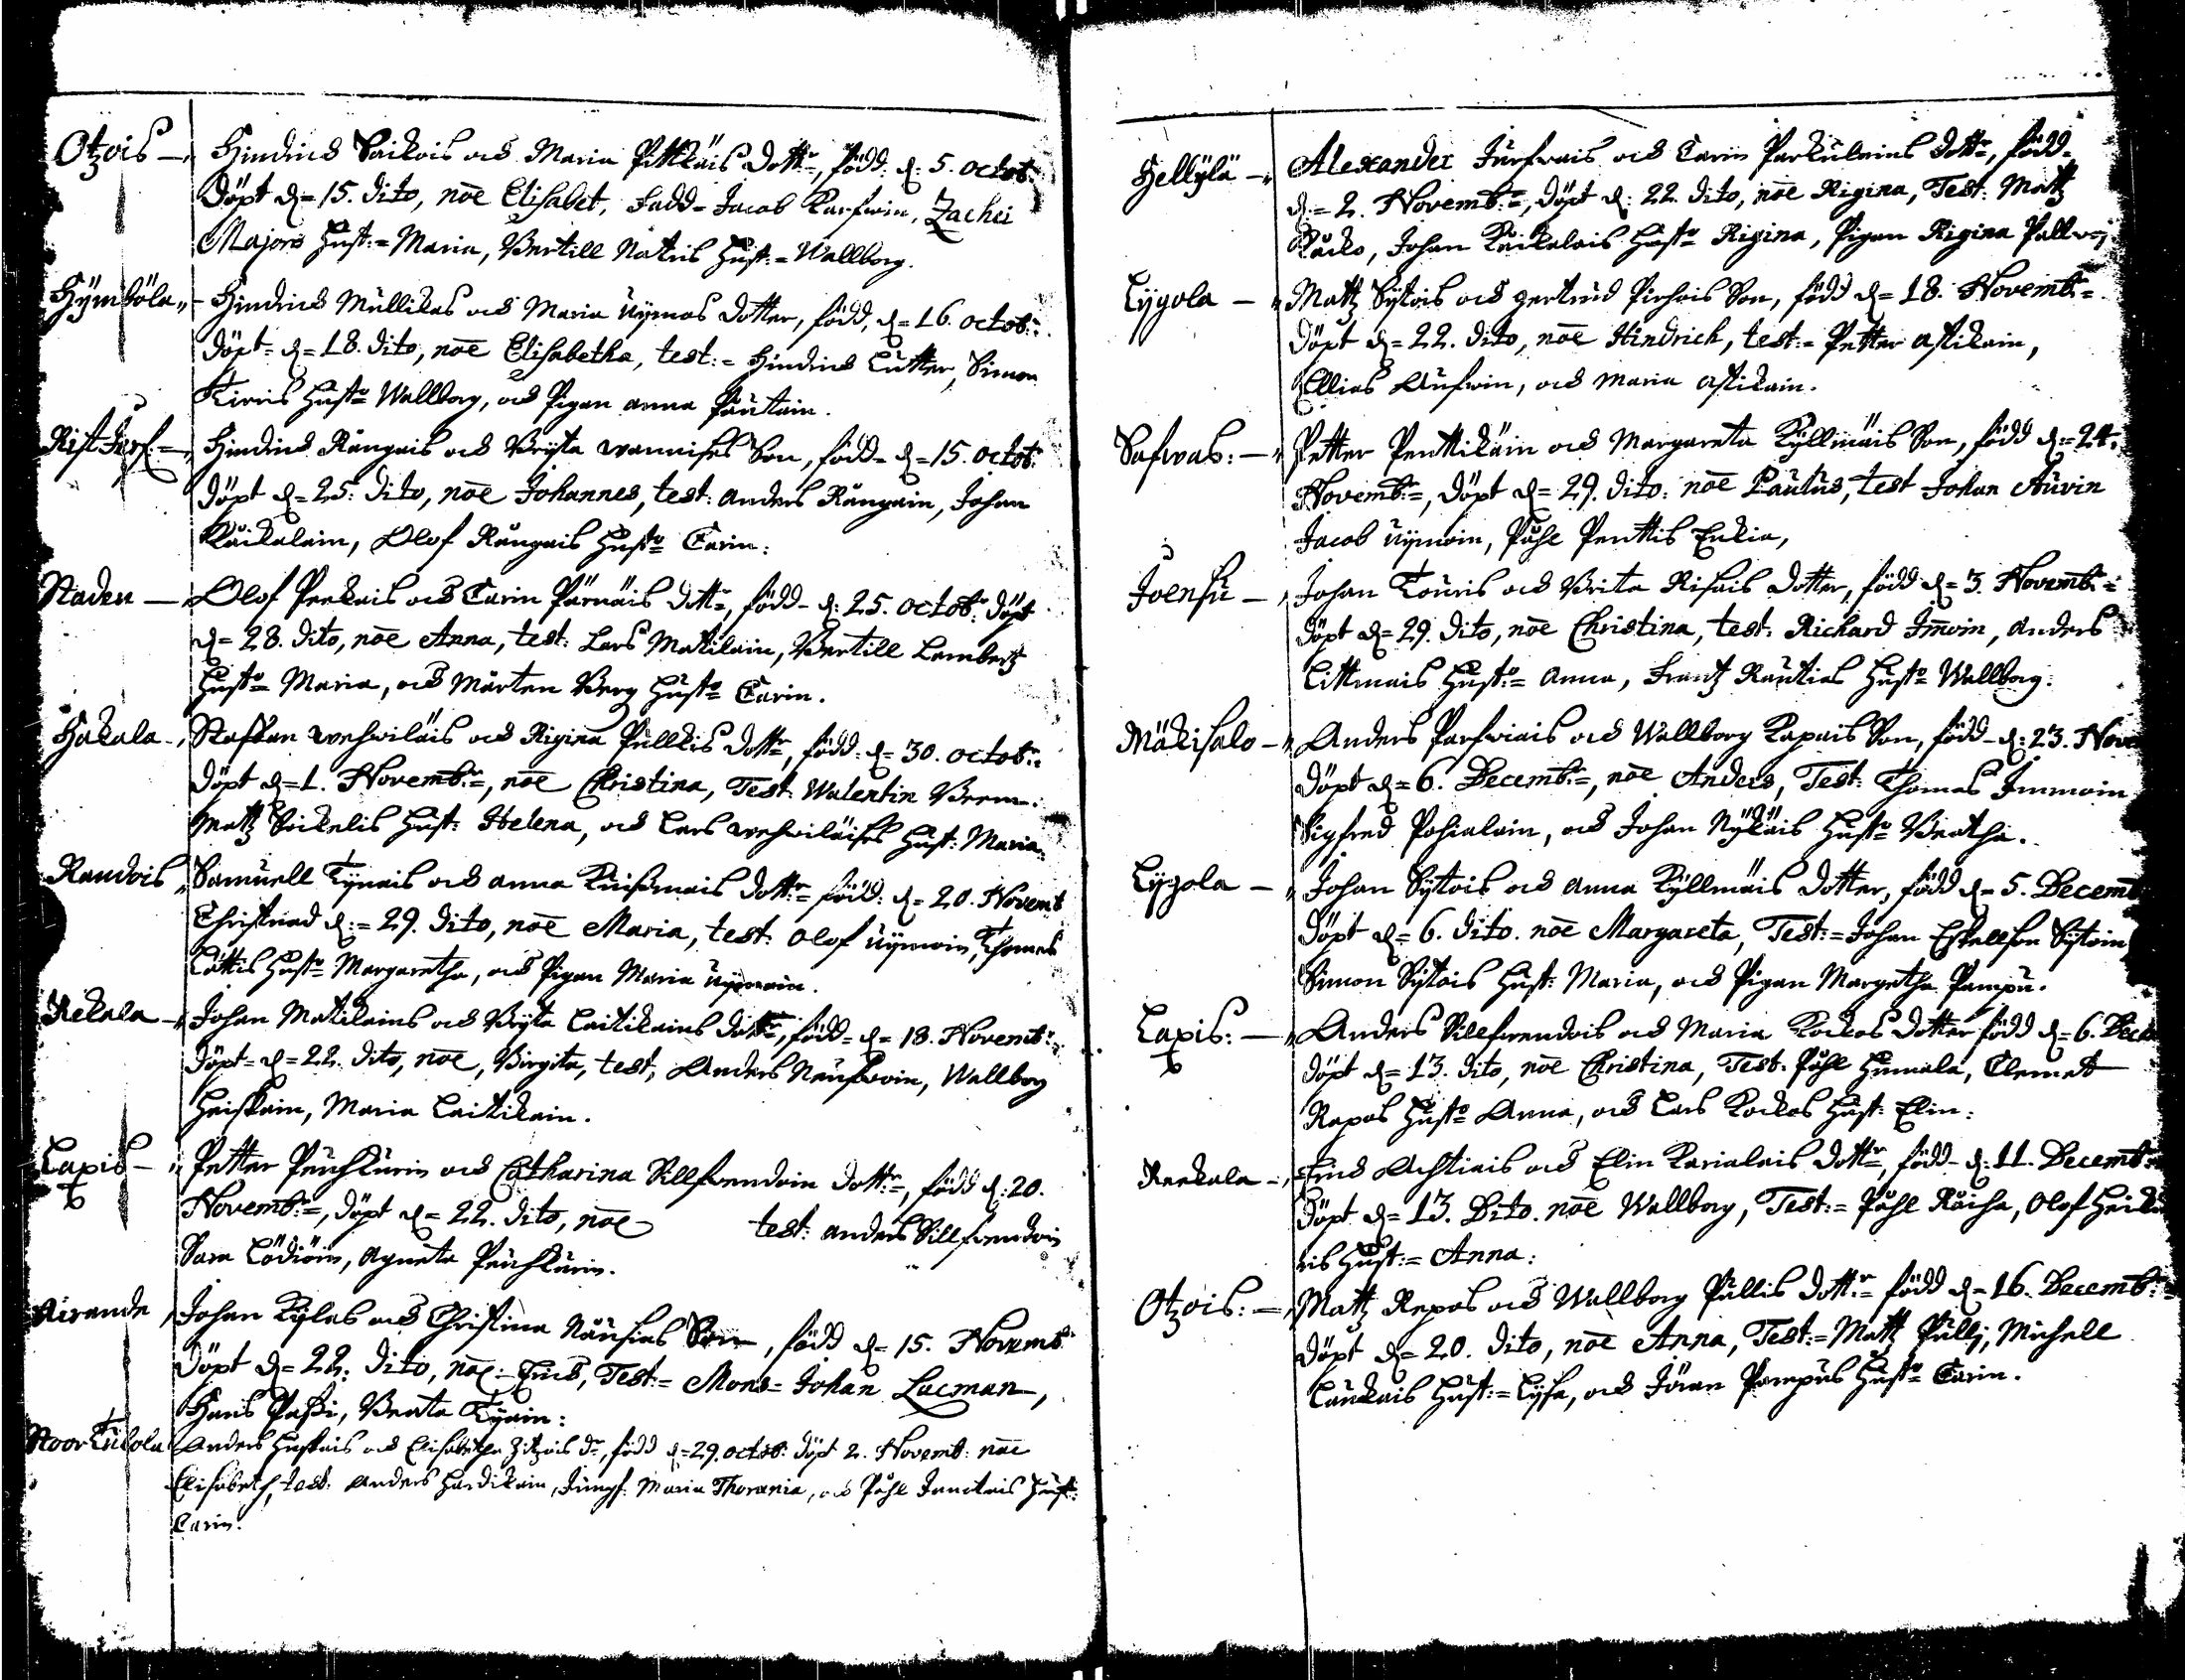 Otzois — Hindrich Saikois och Maria Pittkäis dottr, född: d: 5. octob:
döpt d= 15. dito, nõe Elisabet, Fadd= Jacob Karfwin, Zachei
Majors Hust:= Maria, Bertill Natris Hust:= Wallborg.
Hÿmböla — Hindrich Mullikas och Maria Uÿmos dotter, född, d= 16. octob:
döpt= d= 18. dito, nõe Elisabetha, test:= Hindrich Lutter, Simon
Kirris Husto Wallborg, och Pigan anna Pautain.
Rist Jerf:= Hindrich Rångais och Brÿta wannises Son, född= d= 15. octob:
döpt d= 25: dito, nõe Johannes, test: anders Rångain, Johan
Kaikalain, Olof Rångais Husto Carin:
Staden — Olof Penkais och Carin Pärnäis dottr, född- d: 25. octob: döpt
d= 28. dito, nõe Anna, test: Lars Matilain, Bertill Lambertz
Husto Maria, och Mårten Berg Husto Carin.
Hakala — Staffan wehwiläis och Rigina Pullkis dottr, född: d= 30. octob:
döpt d= 1. Novemb:=, nõe Christina, Test: Walentin
Matz Hust: Helena, och Lars wehwiläises Hust: Maria:
Raudois Samuell Tÿnais och anna dottr= född: d= 20. Novemb
Christnad d:= 29. dito, nõe Maria, test: Olof Uÿmoin, Thomas
Lättis Husto Margaretha, och Pigan Maria Uÿmoin.
Rekala — Johan Matilains och Brÿta Laitikains dottr, född= d= 18. Novemb:
döpt= d= 22. dito, nõe, Birgita, test, Anders Naufwoin, Wallborg
Heiskain, Maria Laitikain.
Lapis — Petter Peuhkurin och Catharina Sillfwendoin dottr=, född d: 20.
Novemb:=, döpt d= 22. dito, nõe test: anders Sillfwendoin
Sara Lödiöin, Agneta Peuhkurin.
Airande Johan Kÿlas och Christina Naufias Son, född d= 15. Novemb:
döpt d= 22. dito, nõe= Erich, Test:= Mons= Johan Lacman,
Hans Passi, Beata Tÿain:
Stoor Kukola Anders Huskais och Elisabetha Zitzois dr, född d= 29. octob: döpt 2. Novemb: nõe
Elisabeth, test: anders Hardikain, Jungf: Maria Thorania, och Påhl Hust:
Carin.
Hellÿlä — Alexander Jurfwais och Carin Parkulains dottr, född=
d:= 2. Novemb:=, döpt d: 22. dito, nõe Rigina, Test: Matz
Kåcko, Johan Kaikalais Husto Rigina, Pigan Rigina
Lÿgola — Matz Sÿtois och gertrud Pirhois Son, född d= 18. Novemb:=
döpt d= 22. dito, nõe Hindrich, test:= Petter astikain,
Ellias Aufwin, och Maria astikain.
Safwas: — Petter Penttikäin och Margareta Kÿllmäis Son, född d:= 24.
Novemb:=, döpt d= 29. dito: nõe Paulus, test Johan Auvin
Jacob Uÿmoin, Påhl Penttis Enkia,
Joensu — Johan Touris och Brita Risais dotter, född d= 3. Novemb:=
döpt d= 29. dito, nõe Christina, test: Richard Im̃oin, anders
Littmais Husto= anna, Frantz Rautias Husto Wallborg.
Mäkisalo — Anders Parfwiais och Wallborg Kapais Son, född- d: 23. Nove
döpt d= 6. Decemb:=, nõe Anders, Test: Thomas Immoin
Sigfred Pohialain, och Johan Nÿkäis Husto Beatha.
Lÿgola — Johan Sÿtois och anna Kÿllmäis dotter, född d= 5. Decemb
döpt d= 6. dito. nõe Margareta, Test:= Johan Eskellson Sÿtoin
Simon Sÿtois Hust: Maria, och Pigan Margetha Pampu.
Lapis: — Anders Sillfwendois och Maria Kockos dotter född d= 6. Dece
döpt d= 13. dito, nõe Christina, Test. Påhl Humala, Clemet
Repos Husto Anna, och Lars Kockos Hust: Elin:
Reekala — Erich Achtiais och Elin Karialais dottr, född- d: 11. Decemb:
döpt d= 13. Dito. nõe Wallborg, Test:= Påhl Räiha, Olof Heika
ris Hust:= Anna:
Otzois: — Matz Repos och Wallborg Pullis dottr= född d= 16. Decemb:=
döpt d= 20. dito, nõe Anna, Test:= Matz Pullj, Michell
Laukais Hust:= Lÿsa, och Jöran Pampus Husto Carin.